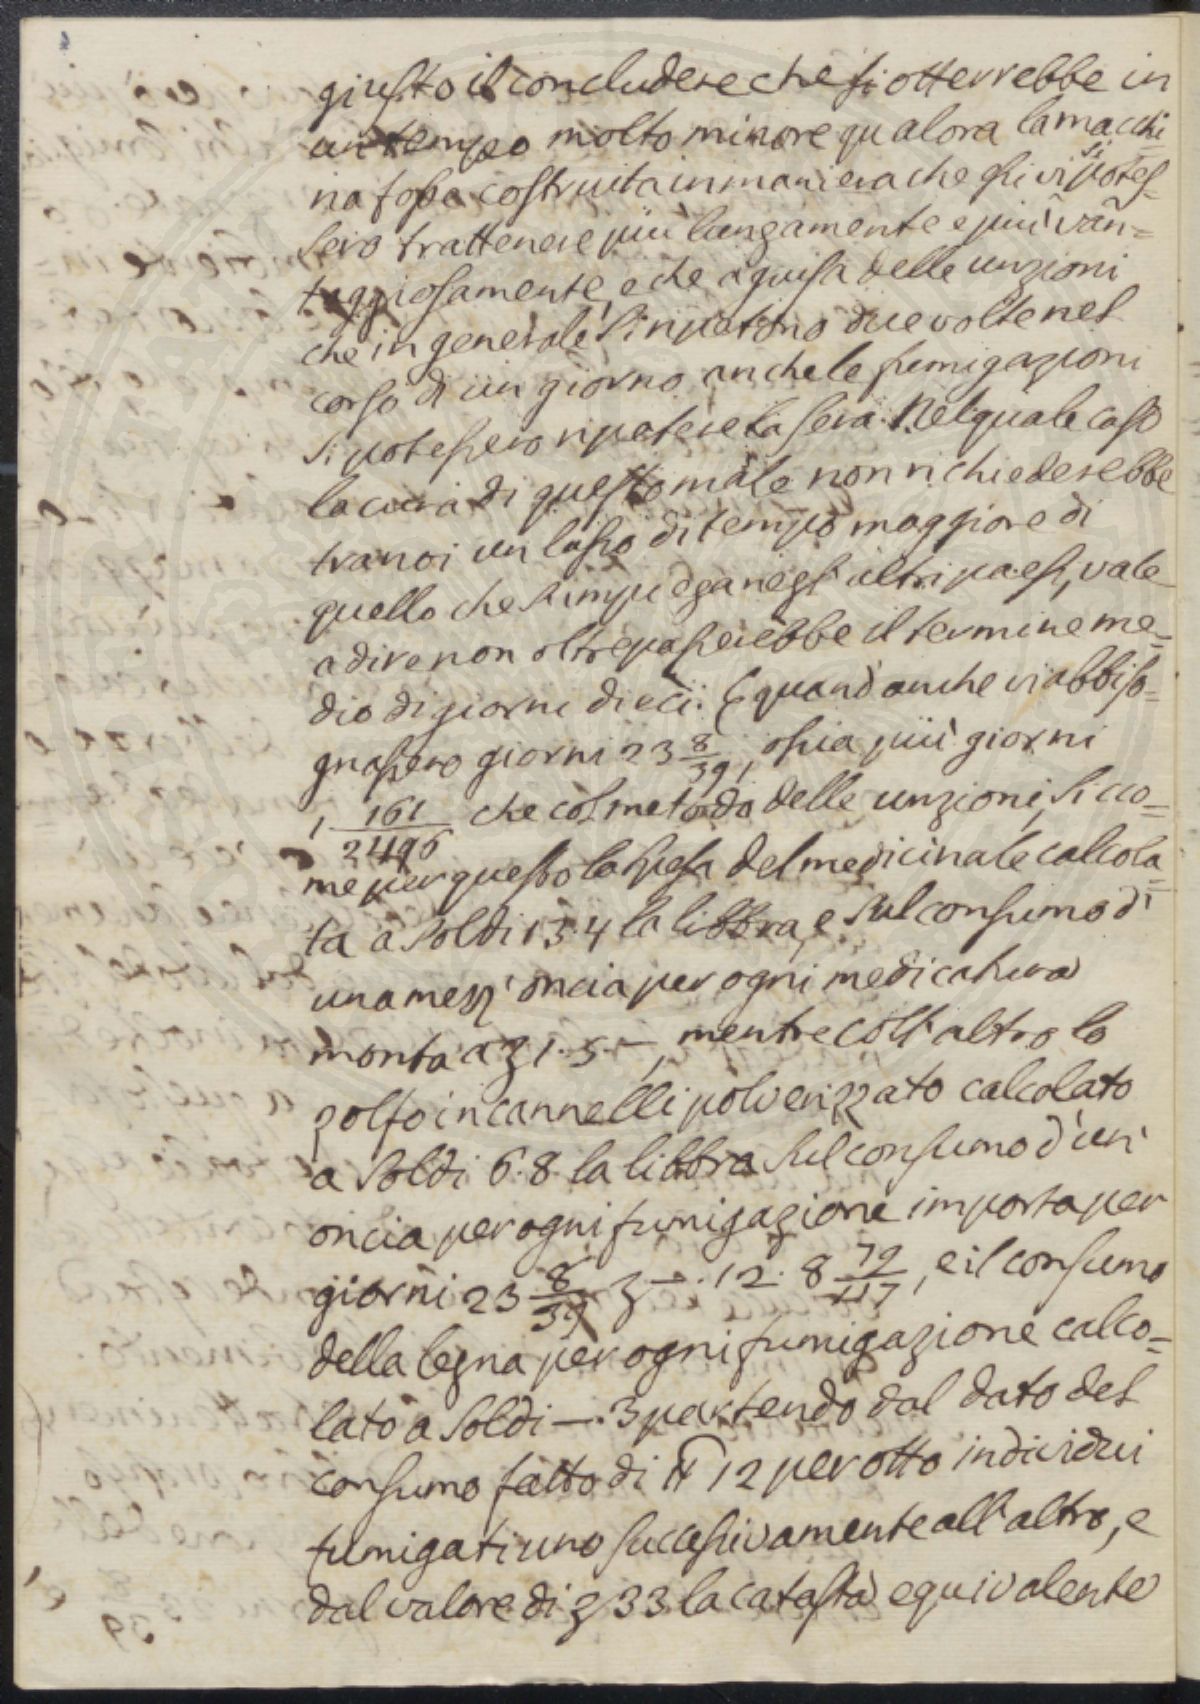 giusto il concludere che si otterrebbe in
un tempo molto minore qualora la macchi
na fosse costruita in maniera che essi vi si potes=
sero trattenere più lungamente e più van=
taggiosamente, e che a guisa delle unzioni
che in generale si ripetono due volte nel
corso di un giorno anche le fumigazioni
si potessero ripetere la sera. Nel quale caso
la cura di questo male non richiederebbe
tra noi un lasso di tempo maggiore di
quello che s'impiega negl'altri paesi, vale
a dire non oltrepasserebbe il termine me=
dio di giorni dieci. E quand'anche vi abbiso=
gnassero giorni 23 8/39, ossia più giorni
1 161/2496 che col metodo delle unzioni, sicco=
me per questo la spesa del medicinale calcola=
ta a soldi 13.4 la libbra, e sul consumo di
una mezz'oncia per ogni medicatura
monta a ʒ 1.5.—, mentre coll'altro lo
zolfo in cannelli polverizzato calcolato
a soldi 6.8. la libbra sul consumo d'un'
oncia per ogni fumigazione importa per
giorni 23 8/39 ʒ —.12.8 72/117, e il consumo
della legna per ogni fumigazione calco=
lato a soldi —.3 partendo dal dato del
consumo fatto di 12 per otto individui
fumigati uno successivamente all'altro, e
dal valore di ʒ 33 la catasta equivalente